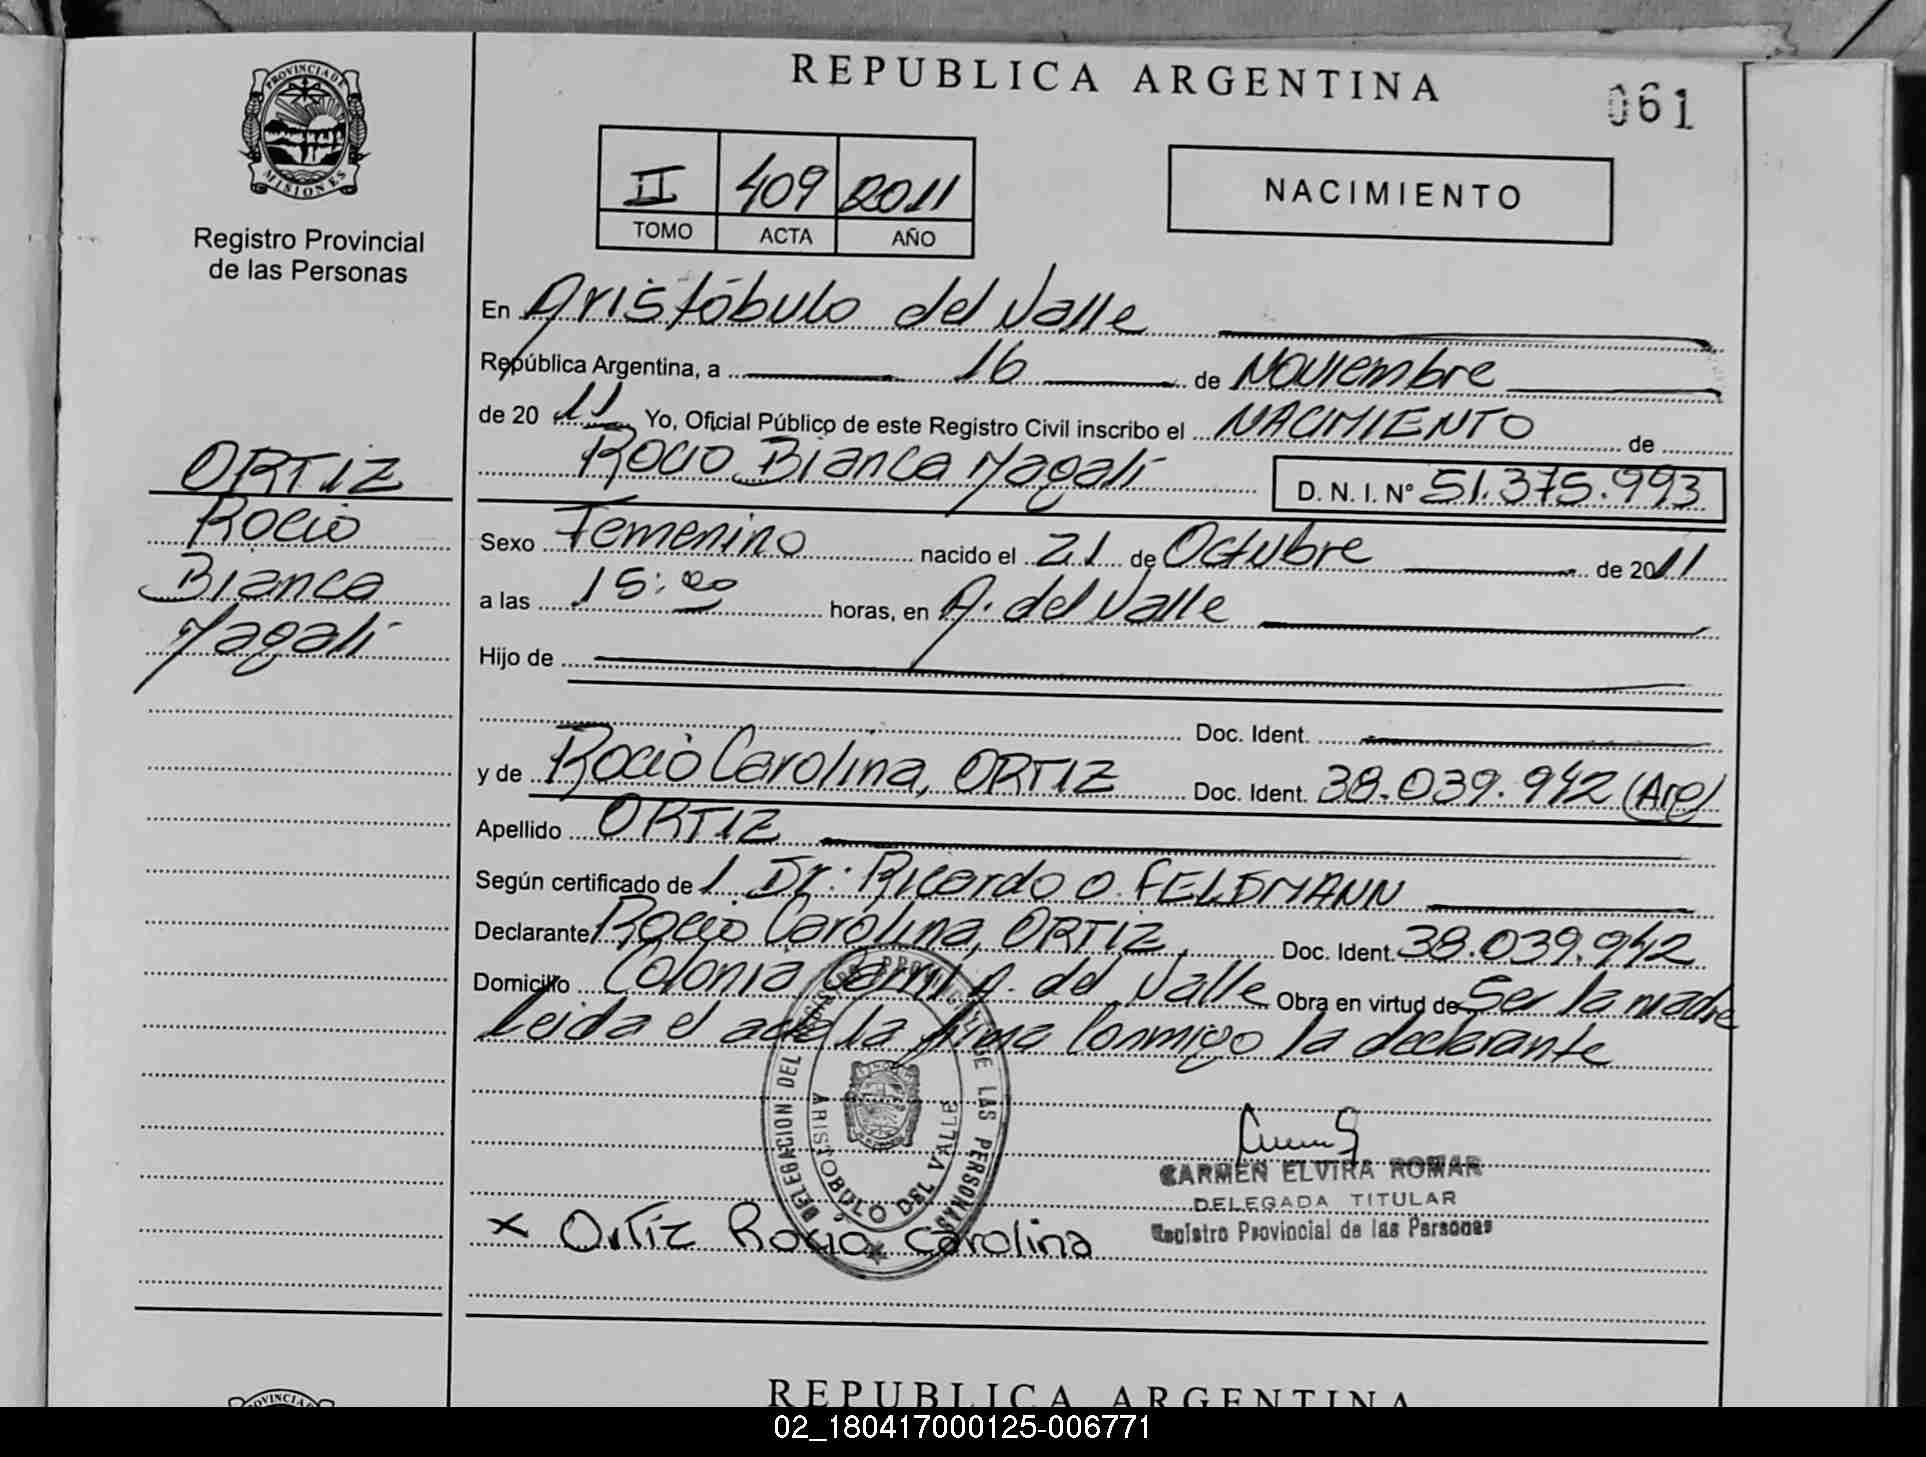 REPUBLICA ARGENTINA
061
PROVINCIA DE
MISIONES
Registro Provincial
de las Personas
II 409 2011
TOMO ACTA AÑO
NACIMIENTO
En Aristóbulo del Valle
República Argentina, a 16 de Noviembre
de 20 11 Yo, Oficial Público de este Registro Civil inscribo el NACIMIENTO de
Rocio Bianca Magali D. N. I. N° 51.375.993
ORTIZ
Rocio
Bianca
Magali
Sexo Femenino nacido el 21 de Octubre de 2011
a las 15:00 horas, en A. del Valle
Hijo de
Doc. Ident.
y de Rocio Carolina, ORTIZ Doc. Ident. 38.039.942 (Arg)
Apellido ORTIZ
Según certificado de 1 Dr: Ricardo O. FELDMANN
Declarante Rocio Carolina, ORTIZ Doc. Ident. 38.039.942
Domicilio Colonia A. del Valle Obra en virtud de Ser la madre
Leida el acta la firma conmigo la declarante
DELEGACION DEL REGISTRO PROVINCIAL DE LAS PERSONAS
ARISTOBULO DEL VALLE
CARMEN ELVIRA ROMAR
DELEGADA TITULAR
Registro Provincial de las Personas
x Ortiz Rocio Carolina
REPUBLICA ARGENTINA
PROVINCIA
02_180417000125-006771